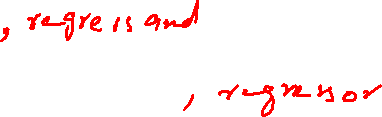 , regressand
, regressor